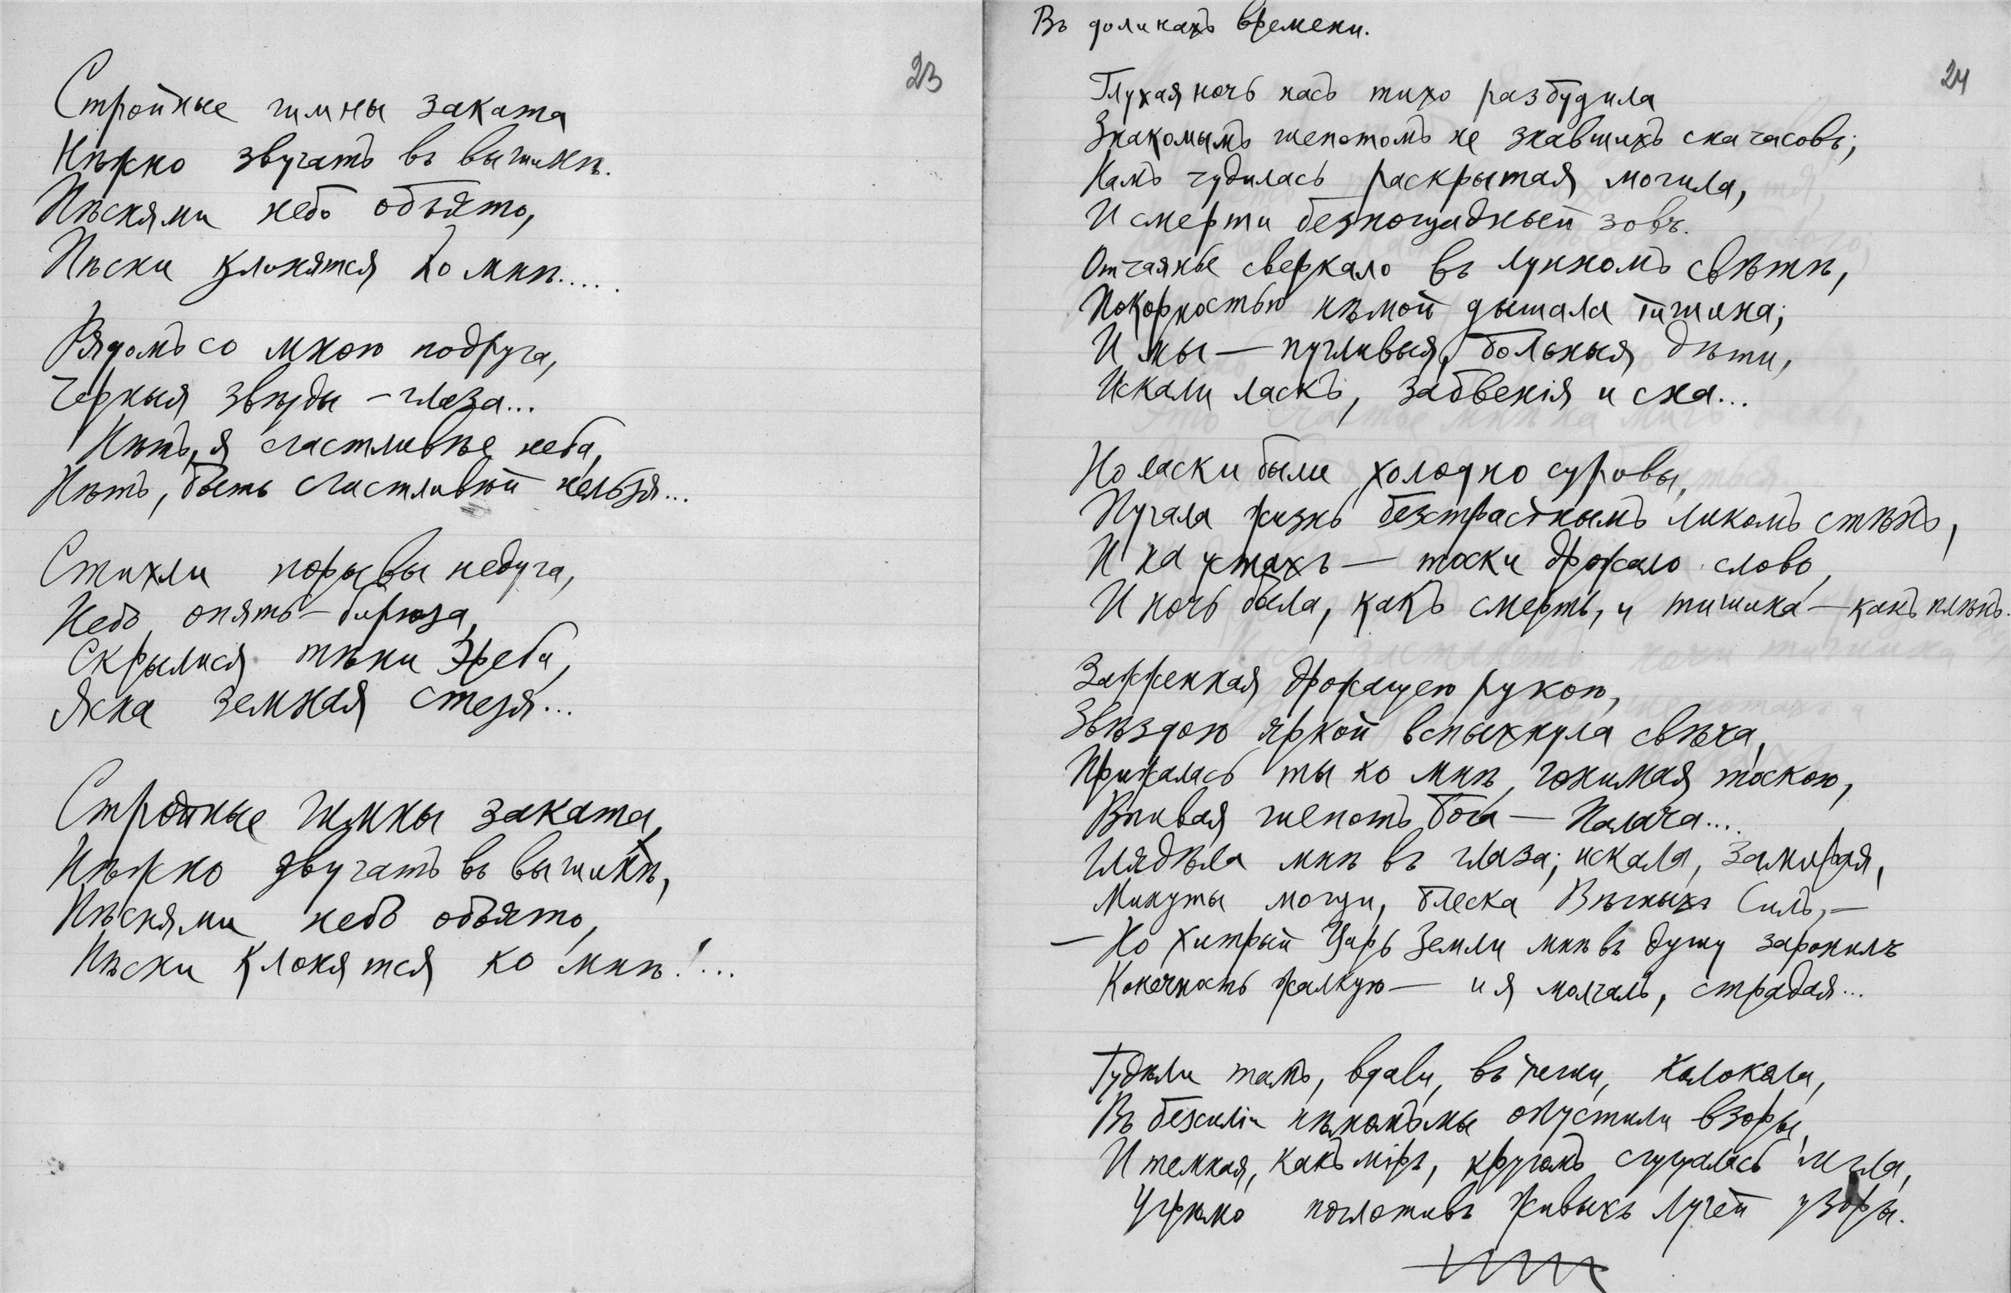 23
Стройные гимны заката
Нѣжно звучатъ въ вышинѣ.
Пѣснями небо объято,
Пѣсни клонятся ко мнѣ.....
Рядомъ со мною подруга,
Черныя звѣзды – глаза...
Нѣтъ, я счастливѣе неба,
Нѣтъ, быть счастливѣй нельзя...
Стихли порывы недуга,
Небо опять – бирюза,
Скрылися тѣни Эреба,
Ясна земная стезя...
Стройные гимны заката,
Нѣжно звучатъ въ вышинѣ,
Пѣснями небо объято,
Пѣсни клонятся ко мнѣ!...
Въ долинахъ времени.
24
Глухая ночь насъ тихо разбудила
Знакомымъ шепотомъ не знавшихъ сна часовъ;
Намъ чудилась раскрытая могила,
И смерти безпощадный зовъ.
Отчаянье сверкало въ лунномъ свѣтѣ,
Покорностью нѣмой дышала тишина;
И мы — пугливыя, больныя дѣти,
Искали ласкъ, забвенія и сна...
Но ласки были холодно суровы,
Пугала жизнь безстрастнымъ ликомъ стѣнъ,
И на устахъ — тоски дрожало слово,
И ночь была, какъ смерть, и тишина — какъ плѣнъ.
Зажженная дрожащею рукою,
Звѣздою яркой вспыхнула свѣча,
Прижалась ты ко мнѣ, гонимая тоскою,
Впивая шепотъ бога — Палача....
Глядѣла мнѣ въ глаза; искала, замирая,
Минуты мощи, блеска Вѣчныхъ Силъ, —
— Но хитрый Царь Земли мнѣ въ душу заронилъ
Конечность жалкую — и я молчалъ, страдая...
Гудѣли тамъ, вдали, въ тѣни, колокола,
Въ безсиліи нѣмомъ мы опустили взоры,
И темная, какъ міръ, кругомъ сгущалась мгла,
Угрюмо поглотивъ живыхъ лучей узоры.